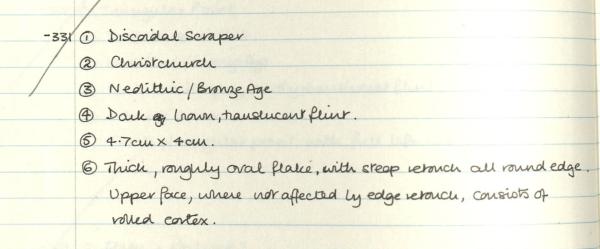 -331 ① Discoidal Scraper
② Christchurch
③ Neolithic / Bronze Age
④ Dark brown, translucent flint.
⑤ 4.7cm x 4cm.
⑥ Thick, roughly oval flake, with steep retouch all round edge.
Upper face, where not affected by edge retouch, consists of
rolled cortex.